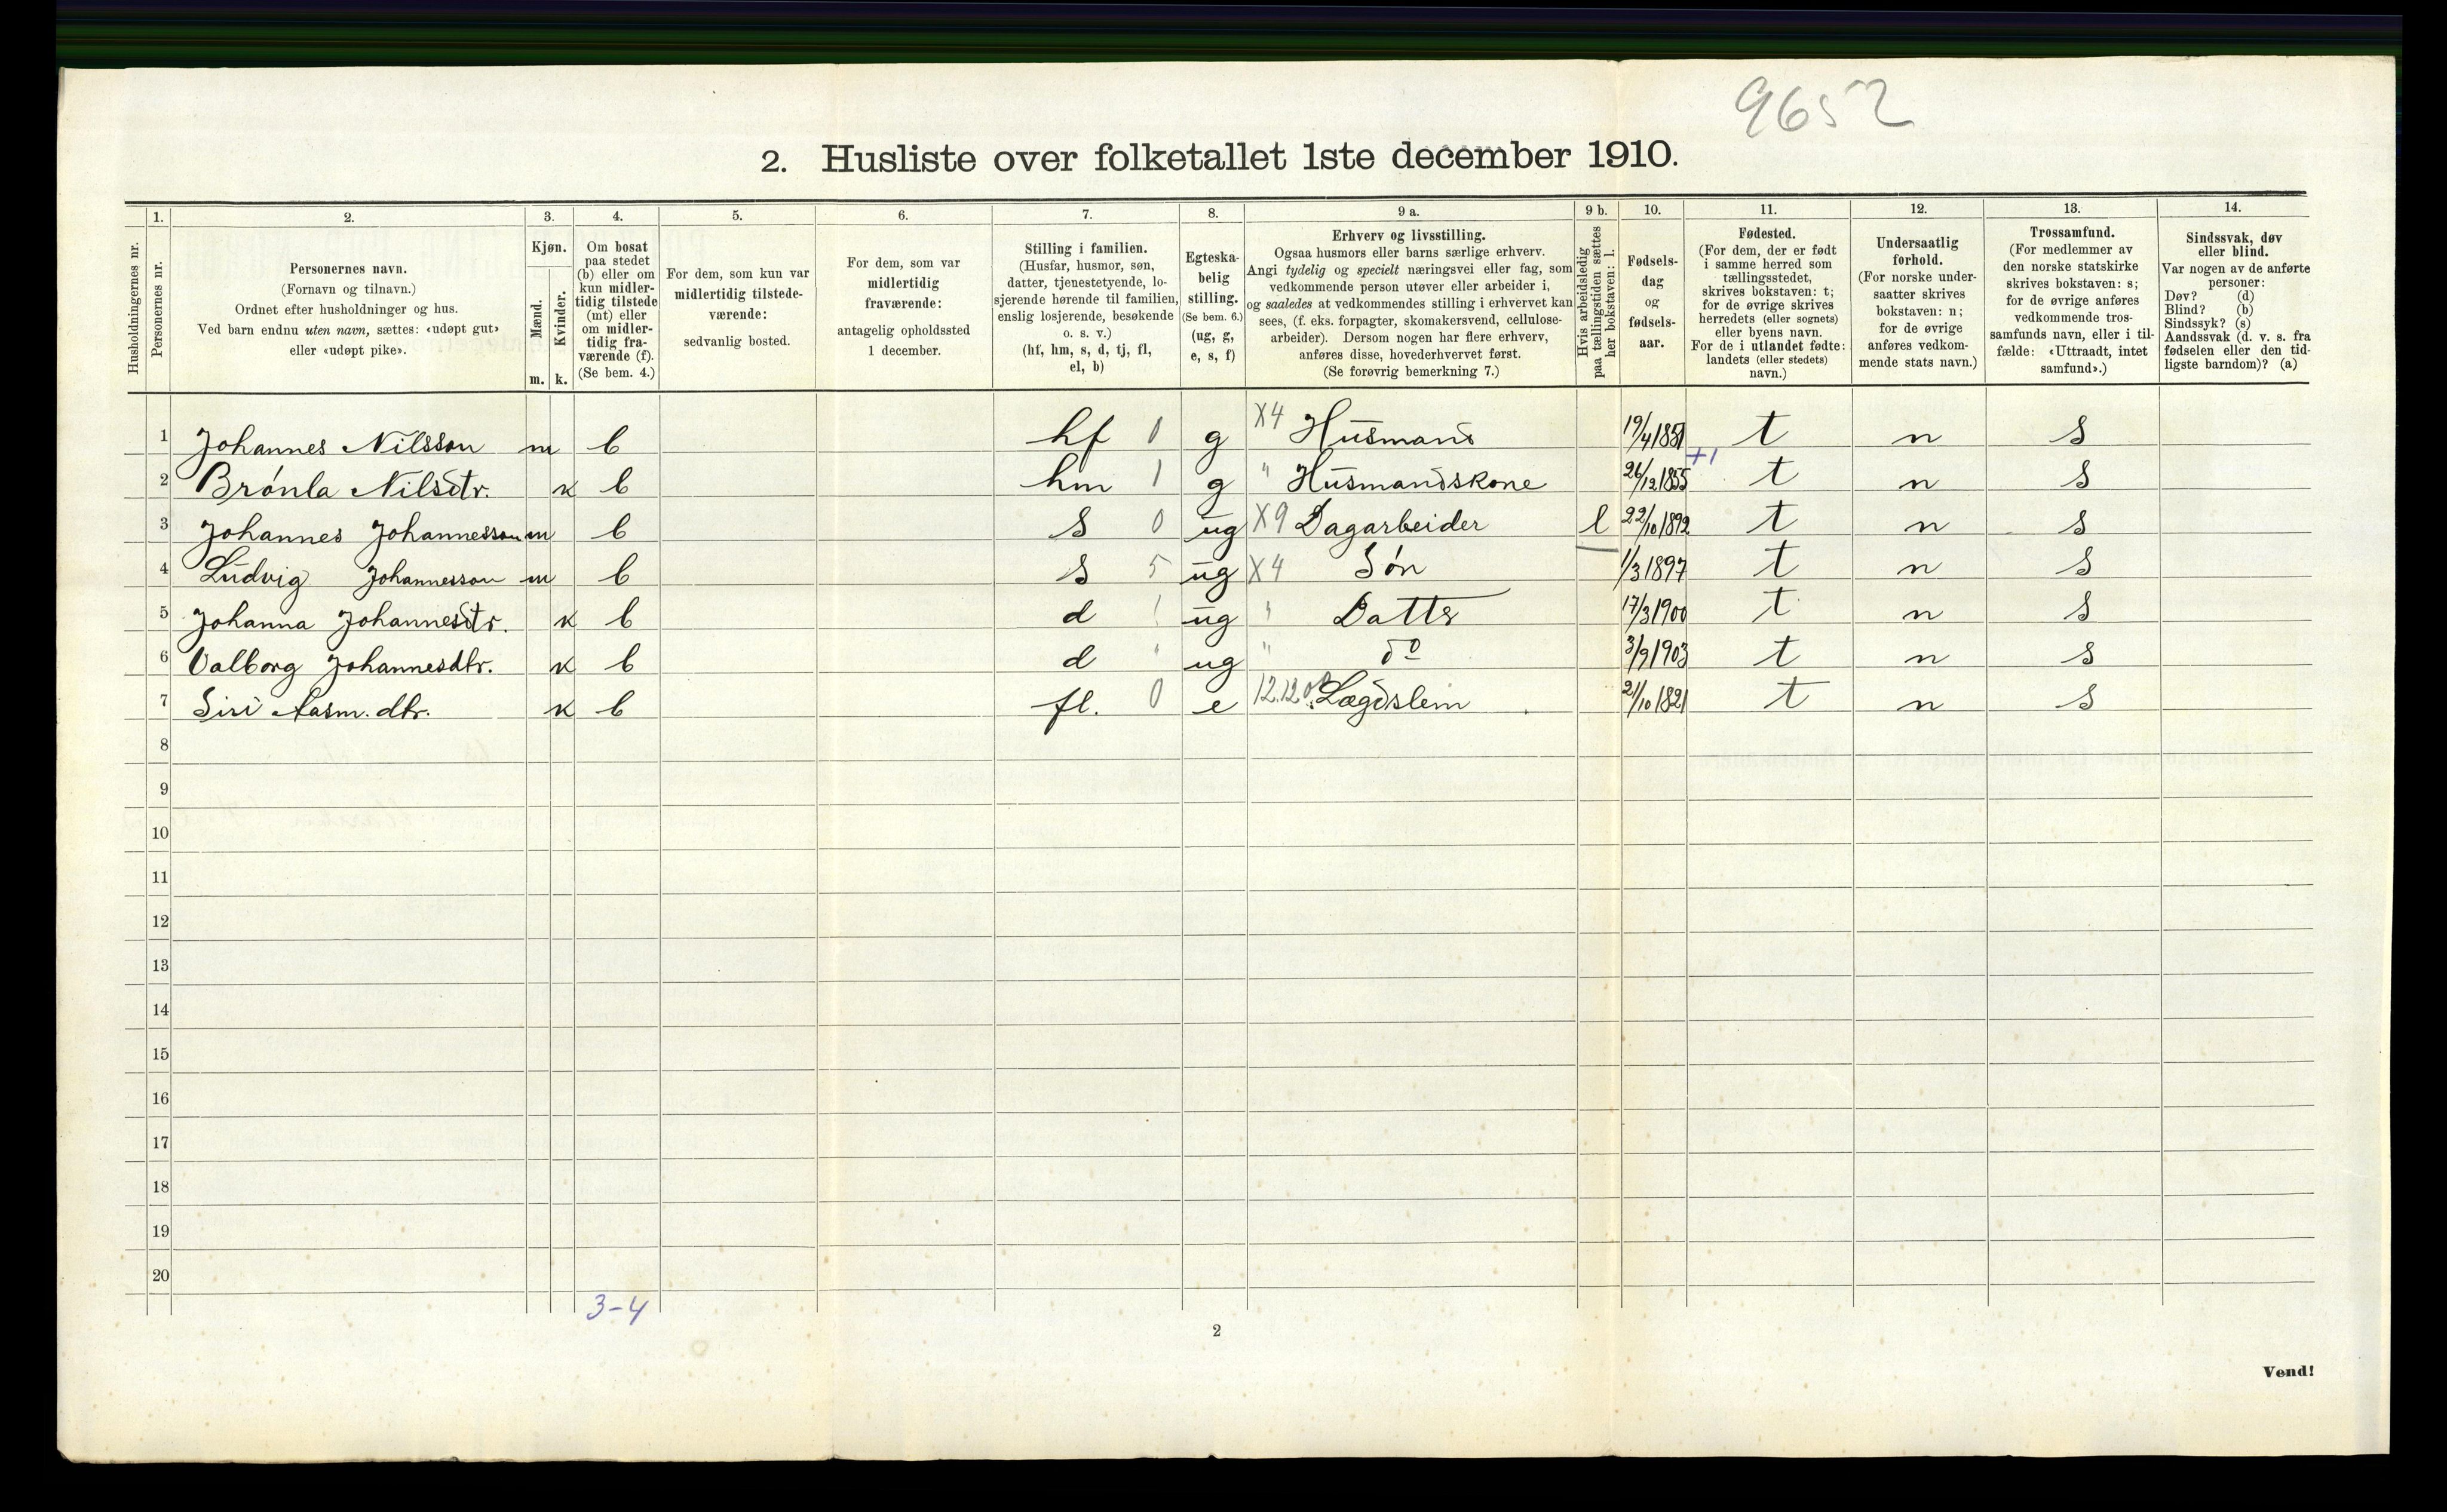 9652
2. Husliste over folketallet 1ste december 1910.
Husholdningernes nr.
1.
Personernes nr.
2.
Personernes navn.
(Fornavn og tilnavn.)
Ordnet efter husholdninger og hus.
Ved barn endnu uten navn, sættes: «udøpt gut»
eller «udøpt pike».
3.
Kjøn.
Mænd.
Kvinder.
m. k.
4.
Om bosat
paa stedet
(b) eller om
kun midler-
tidig tilstede
(mt) eller
om midler-
tidig fra-
værende (f).
(Se bem. 4.)
5.
For dem, som kun var
midlertidig tilstede-
værende:
sedvanlig bosted.
6.
For dem, som var
midlertidig
fraværende:
antagelig opholdssted
1 december.
7.
Stilling i familien.
(Husfar, husmor, søn,
datter, tjenestetyende, lo-
sjerende hørende til familien,
enslig losjerende, besøkende
o. s. v.)
(hf, hm, s, d, tj, fl,
el, b)
8.
Egteska-
belig
stilling.
(Se bem. 6.)
(ug, g,
e, s, f)
9 a.
Erhverv og livsstilling.
Ogsaa husmors eller barns særlige erhverv.
Angi tydelig og specielt næringsvei eller fag, som
vedkommende person utøver eller arbeider i,
og saaledes at vedkommendes stilling i erhvervet kan
sees, (f. eks. forpagter, skomakersvend, cellulose-
arbeider). Dersom nogen har flere erhverv,
anføres disse, hovederhvervet først.
(Se forøvrig bemerkning 7.)
9 b.
Hvis arbeidsledig
paa tællingstiden sættes
her bokstaven: l.
10.
Fødsels-
dag
og
fødsels-
aar.
11.
Fødested.
(For dem, der er født
i samme herred som
tællingsstedet,
skrives bokstaven: t;
for de øvrige skrives
herredets (eller sognets)
eller byens navn.
For de i utlandet fødte:
landets (eller stedets)
navn.)
12.
Undersaatlig
forhold.
(For norske under-
saatter skrives
bokstaven: n;
for de øvrige
anføres vedkom-
mende stats navn.)
13.
Trossamfund.
(For medlemmer av
den norske statskirke
skrives bokstaven: s;
for de øvrige anføres
vedkommende tros-
samfunds navn, eller i til-
fælde: «Uttraadt, intet
samfund».)
14.
Sindssvak, døv
eller blind.
Var nogen av de anførte
personer:
Døv? (d)
Blind? (b)
Sindssyk? (s)
Aandssvak (d. v. s. fra
fødselen eller den tid-
ligste barndom)? (a)
1 Johannes Nilsson m b hf 0 g X4 Husmand 19/4 1851 t n s
2 Brónla Nilsdtr. k b hm 1 g " Husmandskone 26/12 1855 +1 t n s
3 Johannes Johannesson m b s 0 ug X9 Dagarbeider l 22/10 1892 t n s
4 Ludvig Johannesson m b s 5 ug X4 Søn 1/3 1897 t n s
5 Johanna Johannesdtr. k b d ! ug " Datter 17/3 1900 t n s
6 Valborg Johannesdtr. k b d " ug " do 3/9 1903 t n s
7 Siri Aasm. dtr. k b fl. 0 e 12.12.00 Lægdslem 21/10 1821 t n s
8
9
10
11
12
13
14
15
16
17
18
19
20
3-4
2
Vend!